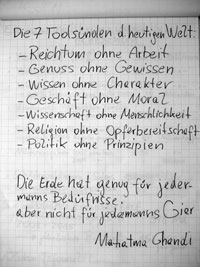 Die 7 Todsünden d. heutigen Welt:
- Reichtum ohne Arbeit
- Genuss ohne Gewissen
- Wissen ohne Charakter
- Geschäft ohne Moral
- Wissenschaft ohne Menschlichkeit
- Religion ohne Opferbereitschaft
- Politik ohne Prinzipien
Die Erde hat genug für jeder-
manns Bedürfnisse,
aber nicht für jedermanns Gier
Mahatma Ghandi